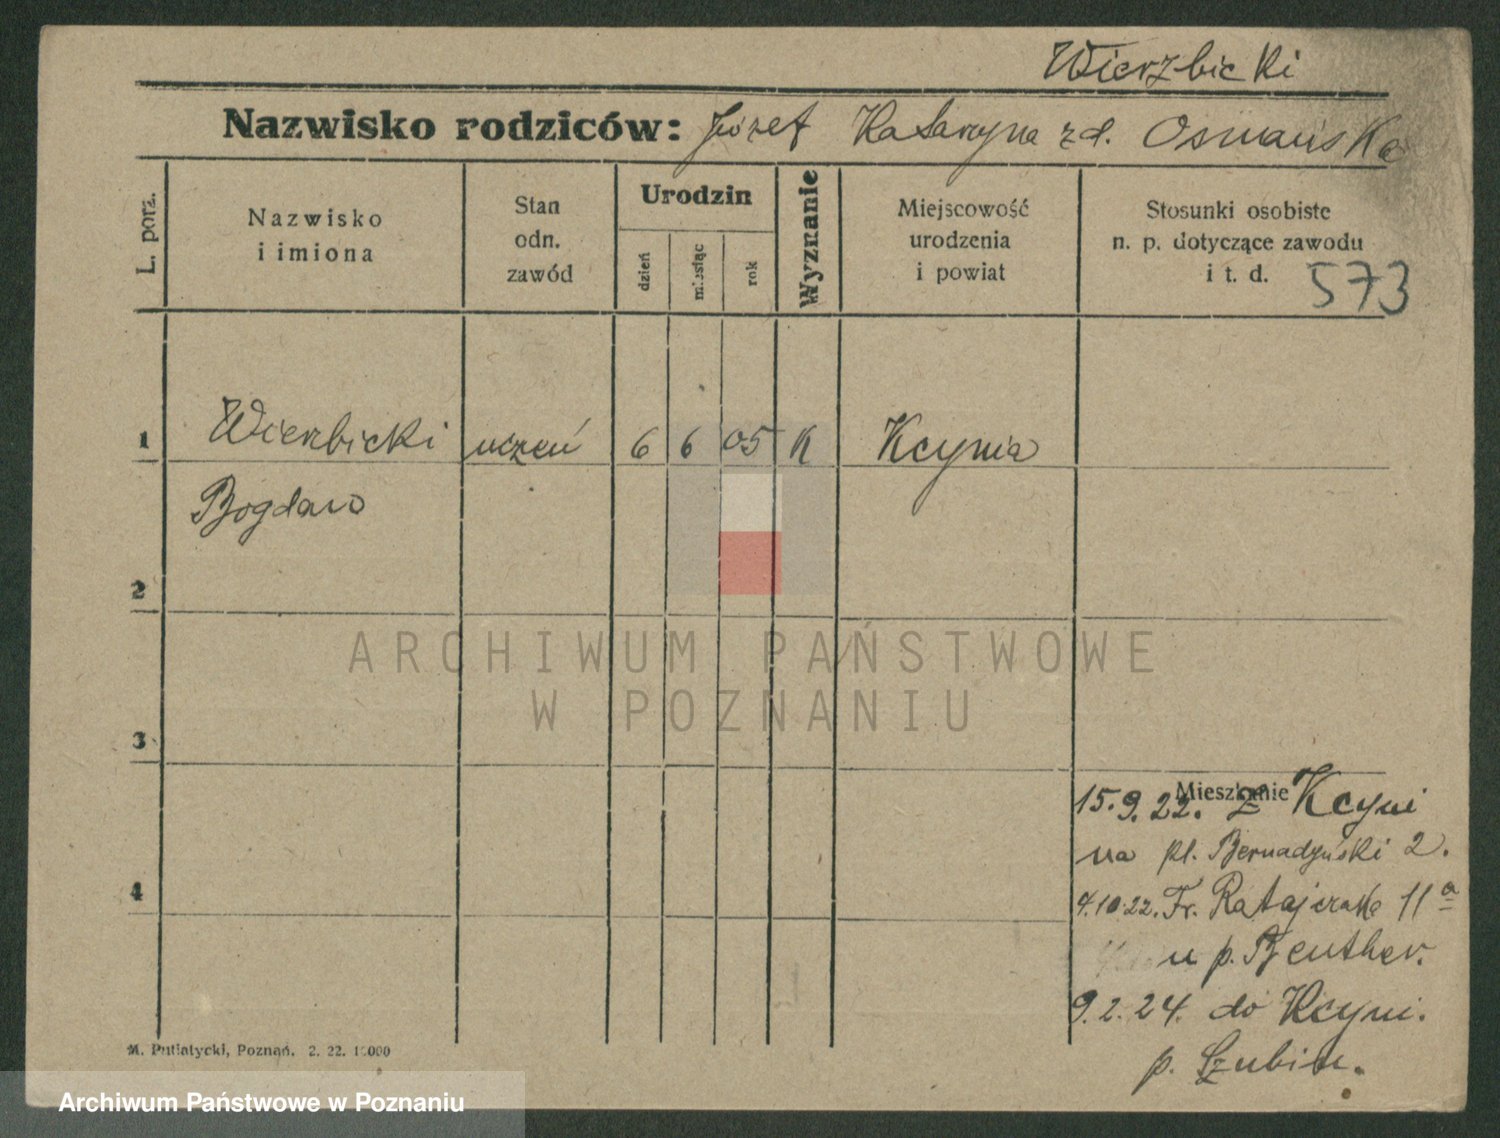 Wierzbicki
Nazwisko rodziców: Józef Katarzyna zd. Osmańska
L. porz.
Nazwisko
i imiona
Stan
odn.
zawód
Urodzin
dzień
miesiąc
rok
Wyznanie
Miejscowość
urodzenia
i powiat
Stosunki osobiste
n. p. dotyczące zawodu
i t. d. 573
1 Wierzbicki uczeń 6 6 05 K Kcynia
Bogdan
2
ARCHIWUM PAŃSTWOWE
W POZNANIU
3
Mieszkanie
15.9.22. z Kcyni
na pl. Bernadyński 2.
4
4.10.22. Fr. Ratajczaka 11a
u p. Beuther.
9.2.24. do Kcyni.
p. Szubin.
M. Putiatycki, Poznań. 2. 22.
Archiwum Państwowe w Poznaniu